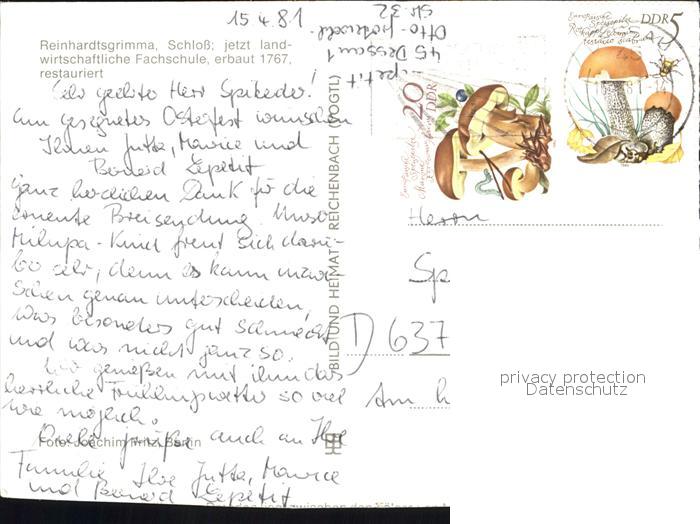 15.4.81
Reinhardtsgrimma, Schloß; jetzt land-
wirtschaftliche Fachschule, erbaut 1767,
restauriert
Sehr geehrter Herr Spikeder!
Ein gesegnetes Osterfest wünschen
Ihnen Jutta, Maurice und
Bernd Lepetit
Ganz herzlichen Dank für die
erneute Breisendung. Unser
Milupa-Kind freut sich darü-
ber sehr, denn es kann inzwi-
schen genau unterscheiden,
was besonders gut schmeckt
und was nicht ganz so.
Wir genießen mit ihm das
herrliche Frühlingswetter so viel
wie möglich.
Grüße auch an Ihre
Familie Ihre Jutta, Maurice
und Bernd Lepetit
Foto: Joachim Fritz, Berlin
BILD UND HEIMAT REICHENBACH (VOGTL)
Lepetit
45 Dessau 1
Str. 32
20
DDR
DDR 5
Europäische Speisepilze
Herrn
Sp
D 637
Am
privacy protection
Datenschutz